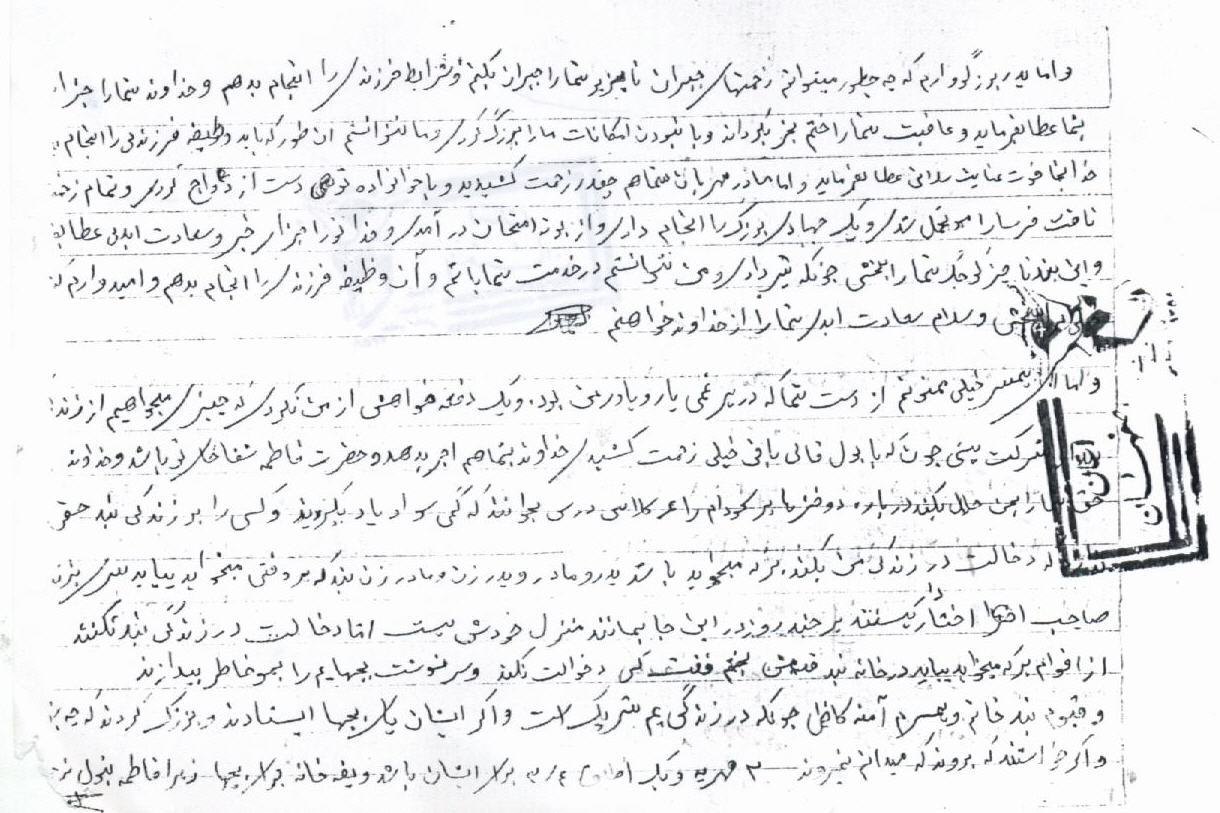 و اما پدر بزرگوارم که چه جطور میتوانم زحمتهای جبران ناپذیر شما را جبران بکنم و شرایط فرزندی را انجام بدهم و خداوند شما را جزا
بشما عطا بفرماید و عاقبت شما را ختم بخیر بگرداند و با نبودن امکانات ما را بزرگ کردی و ما نتوانستم ان طور که باید وظیفه فرزندی را انجام
خدا قوت عنایت سلامتی عطا بفرماید و اما مادر مهربان شما هم چقدر زحمت کشیدید و با خوانواده دست از و تمام
طاقت فرسا را متحمل شدی و یک جهادی بزرگ را انجام دادی و از بوته امتحان در آمدی و خدا تو را جزای خیر و سعادت ابدی عطا
و این بنده ناچیز کوچک شما را ببخشی جونکه شیر دادی و من نتوانستم در خدمت شما باشم و آن وظیفه فرزندی را انجام بدهم و امیدوارم که
و سلام سعادت ابدی شما را از خداوند خواهنم
و اما همسرم خیلی ممنونم از دست شما که در هر غمی یار و یاور من بود، و یک دفعه خواهش از من نکردی که چیزی میخواهیم از
شرکت میی جون که با پول قالی بافی خیلی زحمت کشیدی خداوند بشما هم اجر بدهد و حضرت فاطمه شفاعت تو باشد و خداوند
حق شما را بمن حلال بکند در باره دخترها هر کدام را هر کلاسی درس بخوانند که کمی سواد یاد بگیرند و کسی را بر زندگی بنده حقی
که دخالت در زندگی من بکند هر که میخواهد باشد پدر و مادر و پدر زن و مادر زن بنده که هر وقتی میخواهد بیاید
صاحب اختیار نیستند هر چند روز در این جا بمانند منزل خودش است اما دخالت در زندگی بنده نکنند
از اقوام هر که میخواهد بیاید درخانه بنده قدمش بچشم فقت کسی دخوالت نکند و سرنوشت بچهایم را بمو خاطر بیدازند
و قیوم بنده خانم و همسرم آمنه کاظمی جونکه در زندگیم شریک است و اگر ایشان پای بچها ایستادند و بزرگ کردند که چه
و اگر خواستند که بروند که میدانم نمیروند مهریه و یک برای ایشان باشد و بقه خانه برای بچها زهرا فاطمه بتول